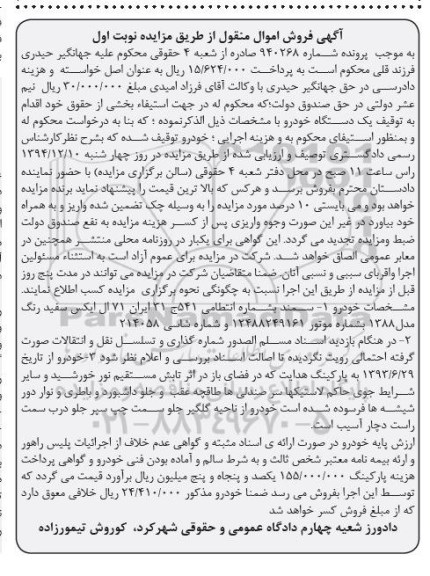 آگهی فروش اموال منقول از طریق مزایده نوبت اول
به موجب پرونده شماره ۹۴۰۲۶۸ صادره از شعبه ۴ حقوقی محکوم علیه جهانگیر حیدری
فرزند قلی محکوم است به پرداخت ۱۵/۶۲۴/۰۰۰ ریال به عنوان اصل خواسته و هزینه
دادرسی در حق جهانگیر حیدری با وکالت آقای فرزاد امیدی مبلغ ۳۰/۰۰۰/۰۰۰ ریال نیم
عشر دولتی در حق صندوق دولت؛که محکوم له در جهت استیفاء بخشی از حقوق خود اقدام
به توقیف یک دستگاه خودرو با مشخصات ذیل الذکرنموده ؛ که بنا به درخواست محکوم له
و بمنظور استیفای محکوم به و هزینه اجرایی ؛ خودرو توقیف شده که بشرح نظرکارشناس
رسمی دادگستری توصیف و ارزیابی شده از طریق مزایده در روز چهار شنبه ۱۳۹۴/۱۲/۱۰
راس ساعت ۱۱ صبح در محل دفتر شعبه ۴ حقوقی (سالن برگزاری مزایده) با حضور نماینده
دادستان محترم بفروش برسد و هرکس که بالا ترین قیمت را پیشنهاد نماید برنده مزایده
خواهد بود و می بایستی ۱۰ درصد مورد مزایده را به وسیله چک تضمین شده واریز و به همراه
خود بیاورد در غیر این صورت وجوه واریزی پس از کسر هزینه مزایده به نفع صندوق دولت
ضبط ومزایده تجدید می گردد. این گواهی برای یکبار در روزنامه محلی منتشر همچنین در
معابر عمومی الصاق خواهد شد. شرکت در مزایده برای عموم آزاد است به استثناء مسئولین
اجرا واقربای سببی و نسبی آنان. ضمنا متقاضیان شرکت در مزایده می توانند در مدت پنج روز
قبل از مزایده از طریق این اجرا نسبت به چگونگی نحوه برگزاری مزایده کسب اطلاع نمایند.
مشخصات خودرو ۱- سمند بشماره انتظامی ۵۴۱ج ۳۱ ایران ۷۱ ال ایکس سفید رنگ
مدل۱۳۸۸ بشماره موتور ۱۲۴۸۸۲۴۹۱۶۱ و شماره شاسی ۲۱۴۰۵۸
۲- در هنگام بازدید اسناد مسلم الصدور شماره گذاری و تسلسل نقل و انتقالات صورت
گرفته احتمالی رویت نگردیده تا اصالت اسناد بررسی و اعلام نظر شود ۳-خودرو از تاریخ
۱۳۹۳/۶/۲۹ به پارکینگ هدایت که در فضای باز در اثر تابش مستقیم نور خورشید و سایر
شرایط جوی حاکم لاستیکها سر صندلی ها طاقچه عقب و جلو داشبورد و باطری و نوار دور
شیشه ها فرسوده شده است خودرو از ناحیه گلگیر جلو سمت چپ سپر جلو درب سمت
راست دچار آسیب است.
ارزش پایه خودرو در صورت ارائه ی اسناد مثبته و گواهی عدم خلاف از اجرائیات پلیس راهور
و ارئه بیمه نامه معتبر شخص ثالث و به شرط سالم و آماده بودن فنی خودرو و گواهی پرداخت
هزینه پارکینگ ۱۵۵/۰۰۰/۰۰۰ یکصد و پنجاه و پنج میلیون ریال برآورد قیمت می گردد که
توسط این اجرا بفروش می رسد ضمنا خودرو مذکور ۲۴/۴۱۰/۰۰۰ ریال خلافی معوق دارد
که از مبلغ فروش کسر خواهد شد
دادورز شعبه چهارم دادگاه عمومی و حقوقی شهرکرد، کوروش تیمورزاده
۰۲۱-۸۸۳۴۹۶۷۰-۵